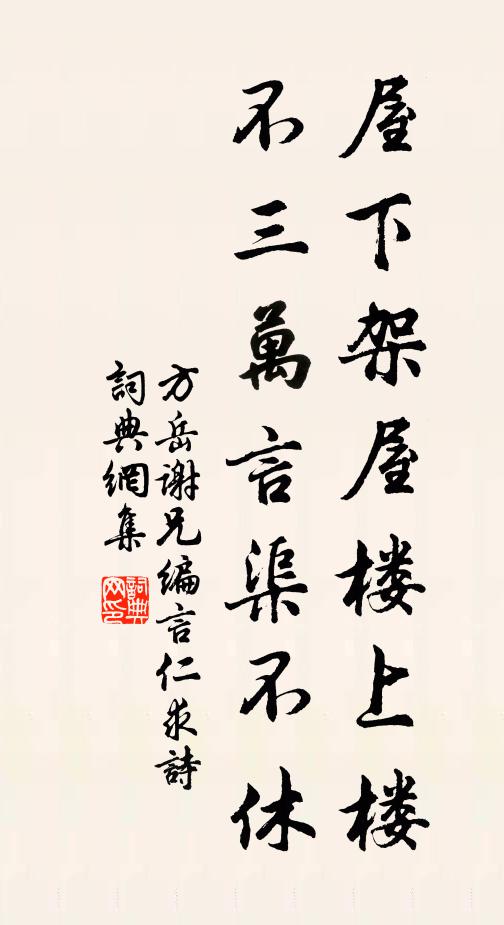 屋下架屋楼上楼
不三萬言渠不休
方岳谢兄编言仁求詩
詞典網集
詞典網印